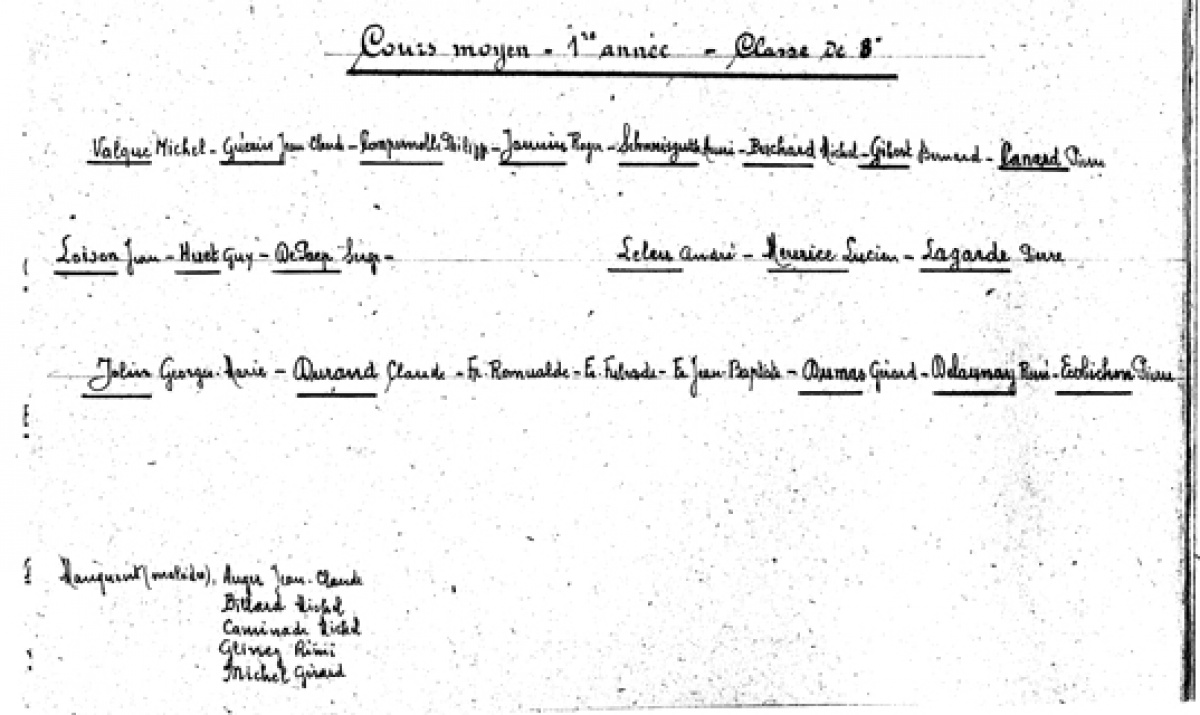 Cours moyen - 1re année - Classe de 8e
Valque Michel - Guérin Jean Claude - Philipp - Jannin Roger - - Buchard Michel - Gibert Bernard - Canard Pierre
Loison Jean - Huet Guy - De Paep - Leleu André - Meurice Lucien - Lagarde Pierre
Jolin Georges-Marie - Durand Claude - Fr. Romualde - Fr. Fulrade - Fr Jean-Baptiste - Dumas Gérard - Delaunay René - Pierre
Manquent (malades), Auger Jean-Claude
Billard Michel
Caminade Michel
Rémi
Michel Gérard